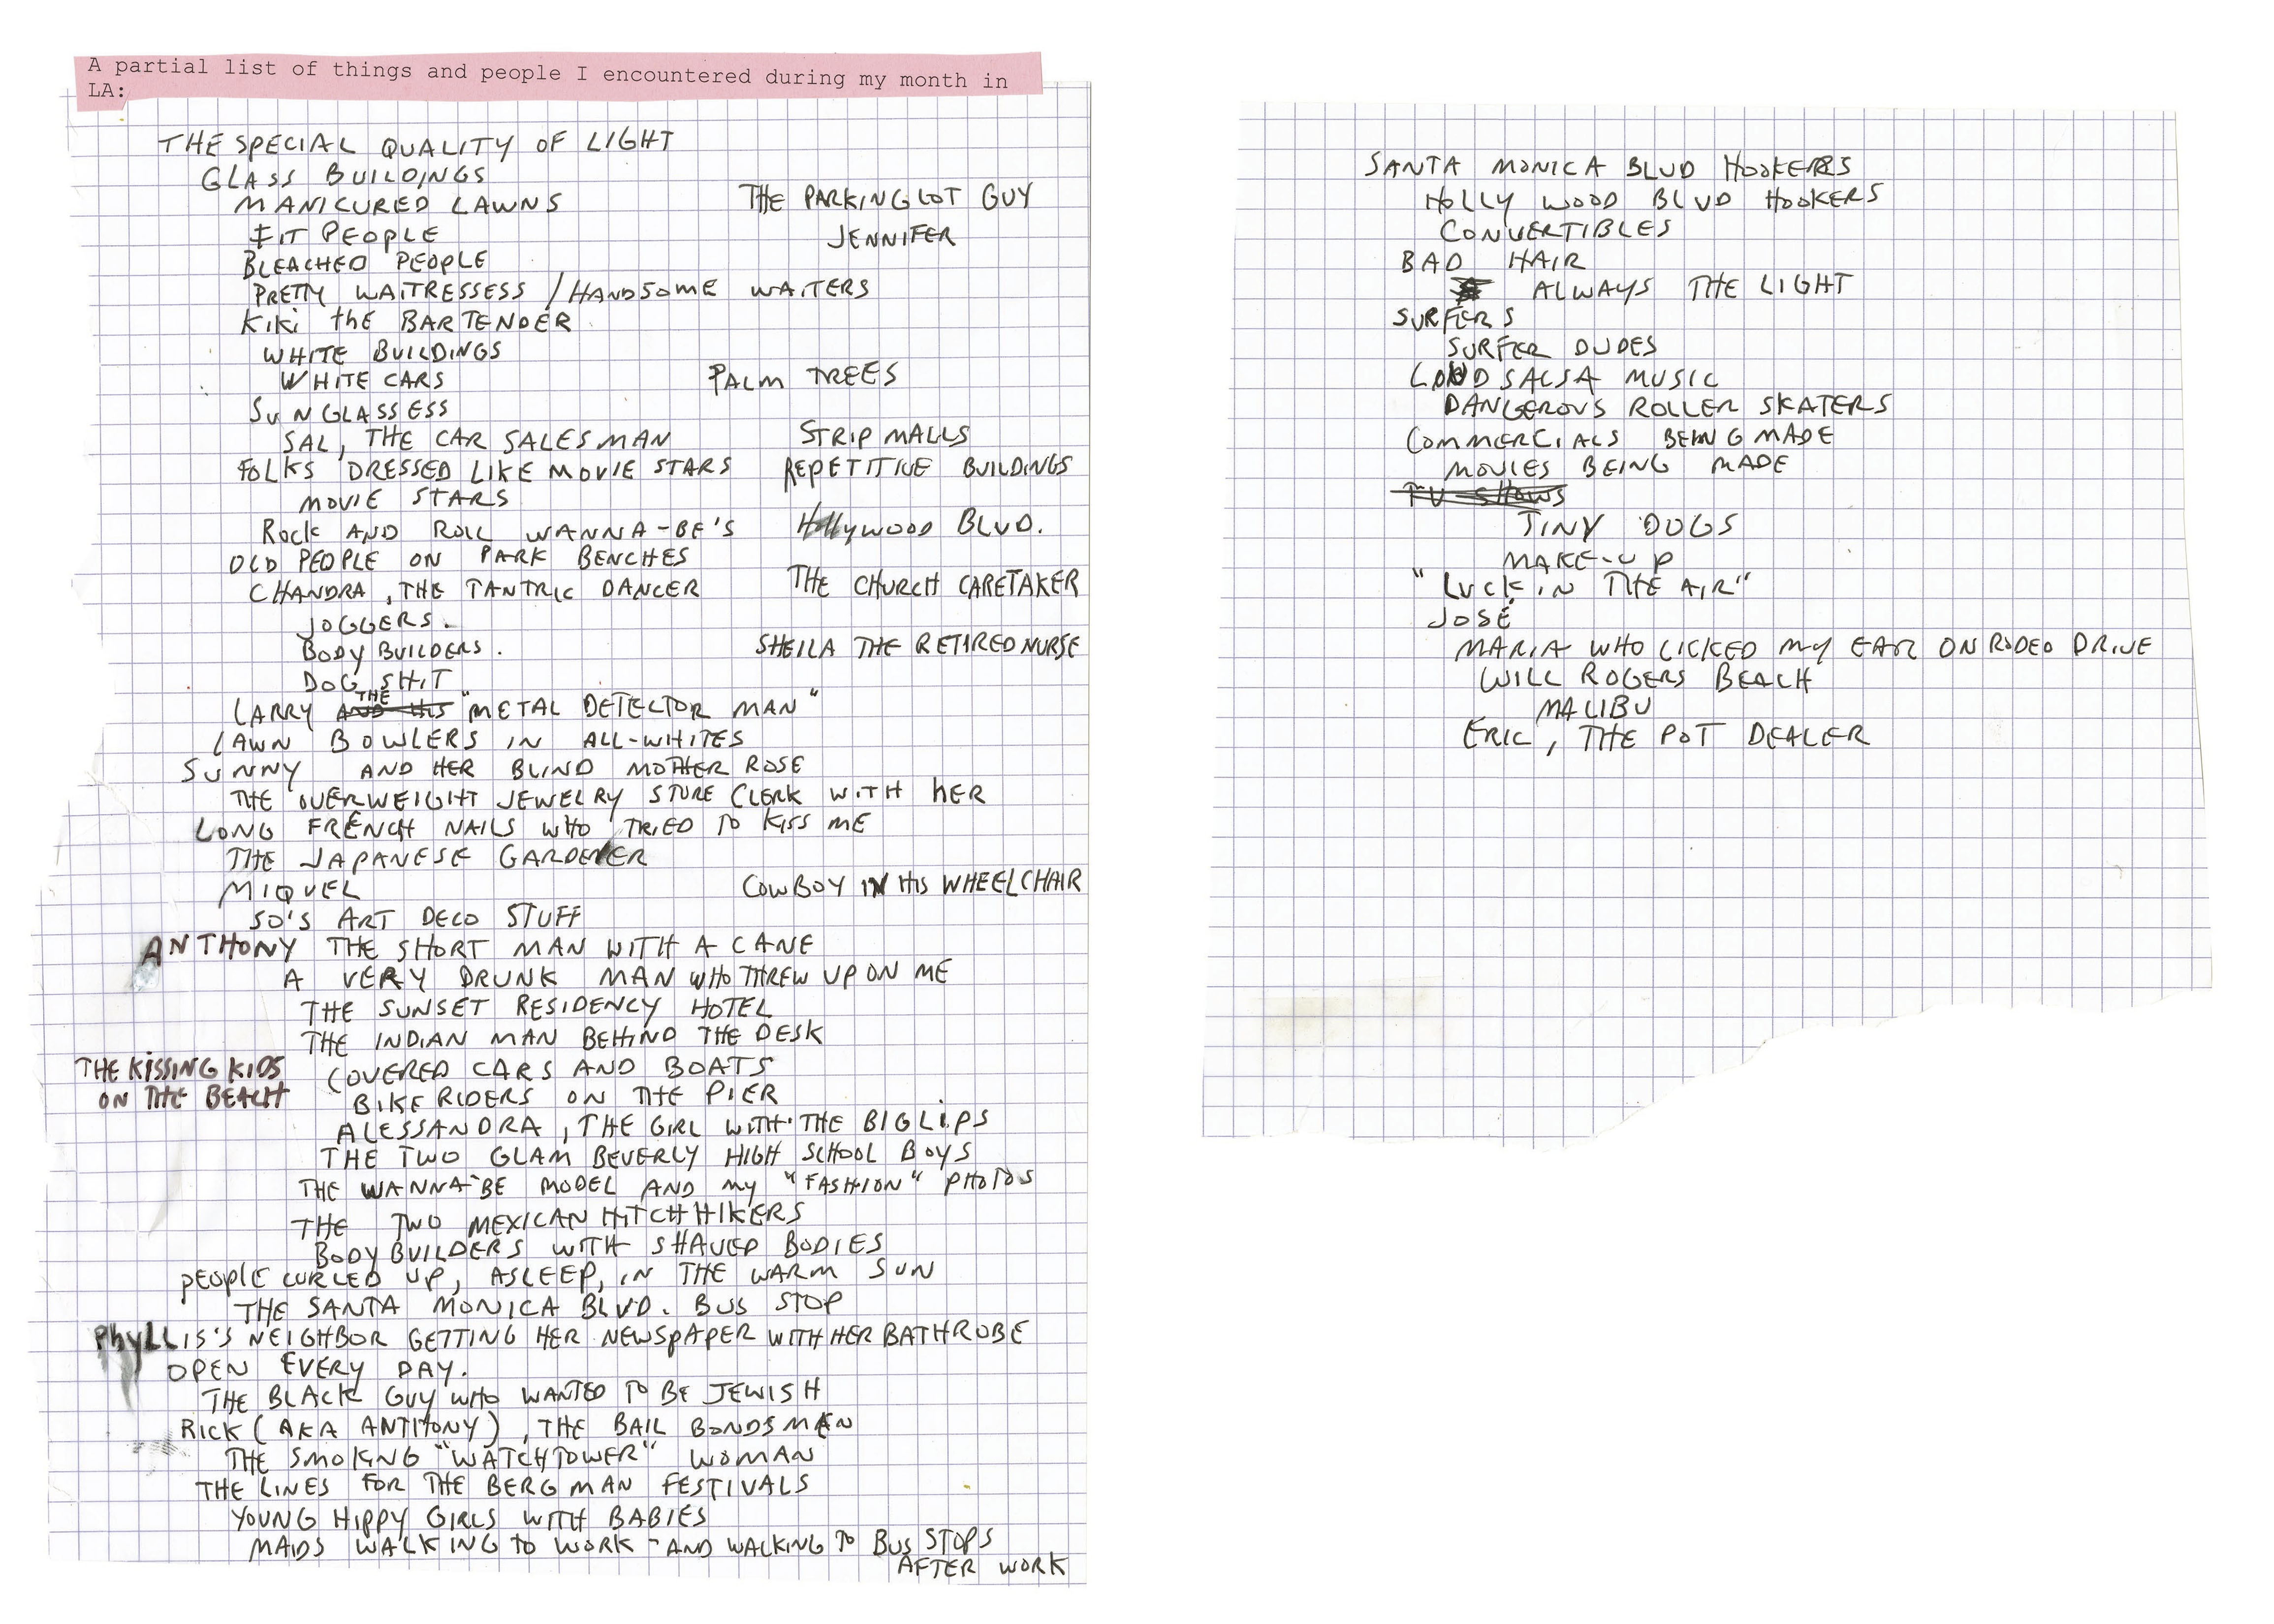 A partial list of things and people I encountered during my month in
LA:
THE SPECIAL QUALITY OF LIGHT
GLASS BUILDINGS
MANICURED LAWNS
THE PARKING LOT GUY
FIT PEOPLE
JENNIFER
BLEACHED PEOPLE
PRETTY WAITRESSESS / HANDSOME WAITERS
KIKI thE BARTENDER
WHITE BUILDINGS
WHITE CARS
PALM TREES
SUNGLASSESS
SAL, THE CAR SALESMAN
STRIP MALLS
FOLKS DRESSED LIKE MOVIE STARS
REPETITIVE BUILDINGS
MOVIE STARS
ROCK AND ROLL WANNA-BE'S
HOllywOOD BLVD.
OLD PEOPLE ON PARK BENCHES
CHANDRA, THE TANTRIC DANCER
THE CHURCH CARETAKER
JOGGERS.
BODY BUILDERS.
SHEILA THE RETIRED NURSE
DOG SHIT
LARRY AND HIS THE "METAL DETECTOR MAN"
LAWN BOWLERS IN ALL-WHITES
SUNNY AND HER BLIND MOTHER ROSE
THE OVERWEIGHT JEWELRY STORE CLERK WITH hER
LONG FRENCH NAILS WHO TRIED TO KISS ME
THE JAPANESE GARDENER
MIQUEL
COWBOY IN HIS WHEELCHAIR
50'S ART DECO STUFF
ANTHONY THE SHORT MAN WITH A CANE
A VERY DRUNK MAN WHO THREW UP ON ME
THE SUNSET RESIDENCY HOTEL
THE INDIAN MAN BEHIND THE DESK
THE KISSING KIDS
ON THE BEACH
COVERED CARS AND BOATS
BIKE RIDERS ON THE PIER
ALESSANDRA, THE GIRL WITH THE BIG LIPS
THE TWO GLAM BEVERLY HIGH SCHOOL BOYS
THE WANNA-BE MODEL AND MY "FASHION" PHOTOS
THE TWO MEXICAN HITCHHIKERS
BODY BUILDERS WITH SHAVED BODIES
PEOPLE CURLED UP, ASLEEP, IN THE WARM SUN
THE SANTA MONICA BLVD. BUS STOP
PhyLLIS'S NEIGHBOR GETTING HER NEWSPAPER WITH HER BATHROBE
OPEN EVERY DAY.
THE BLACK GUY WHO WANTED TO BE JEWISH
RICK (AKA ANTHONY), THE BAIL BONDSMAN
THE SMOKING "WATCHTOWER" WOMAN
THE LINES FOR THE BERGMAN FESTIVALS
YOUNG HIPPY GIRLS WITH BABIES
MAIDS WALKING TO WORK - AND WALKING TO BUS STOPS
AFTER WORK
SANTA MONICA BLVD HOOKERS
HOLLY WOOD BLVD HOOKERS
CONVERTIBLES
BAD HAIR
ALWAYS THE LIGHT
SURFERS
SURFER DUDES
LOUD SALSA MUSIC
DANGEROUS ROLLER SKATERS
COMMERCIALS BEING MADE
MOVIES BEING MADE
TV SHOWS
TINY DOGS
MAKE-UP
"LUCK IN THE AIR"
JOSÉ
MARIA WHO LICKED MY EAR ON RODEO DRIVE
WILL ROGERS BEACH
MALIBU
ERIC, THE POT DEALER